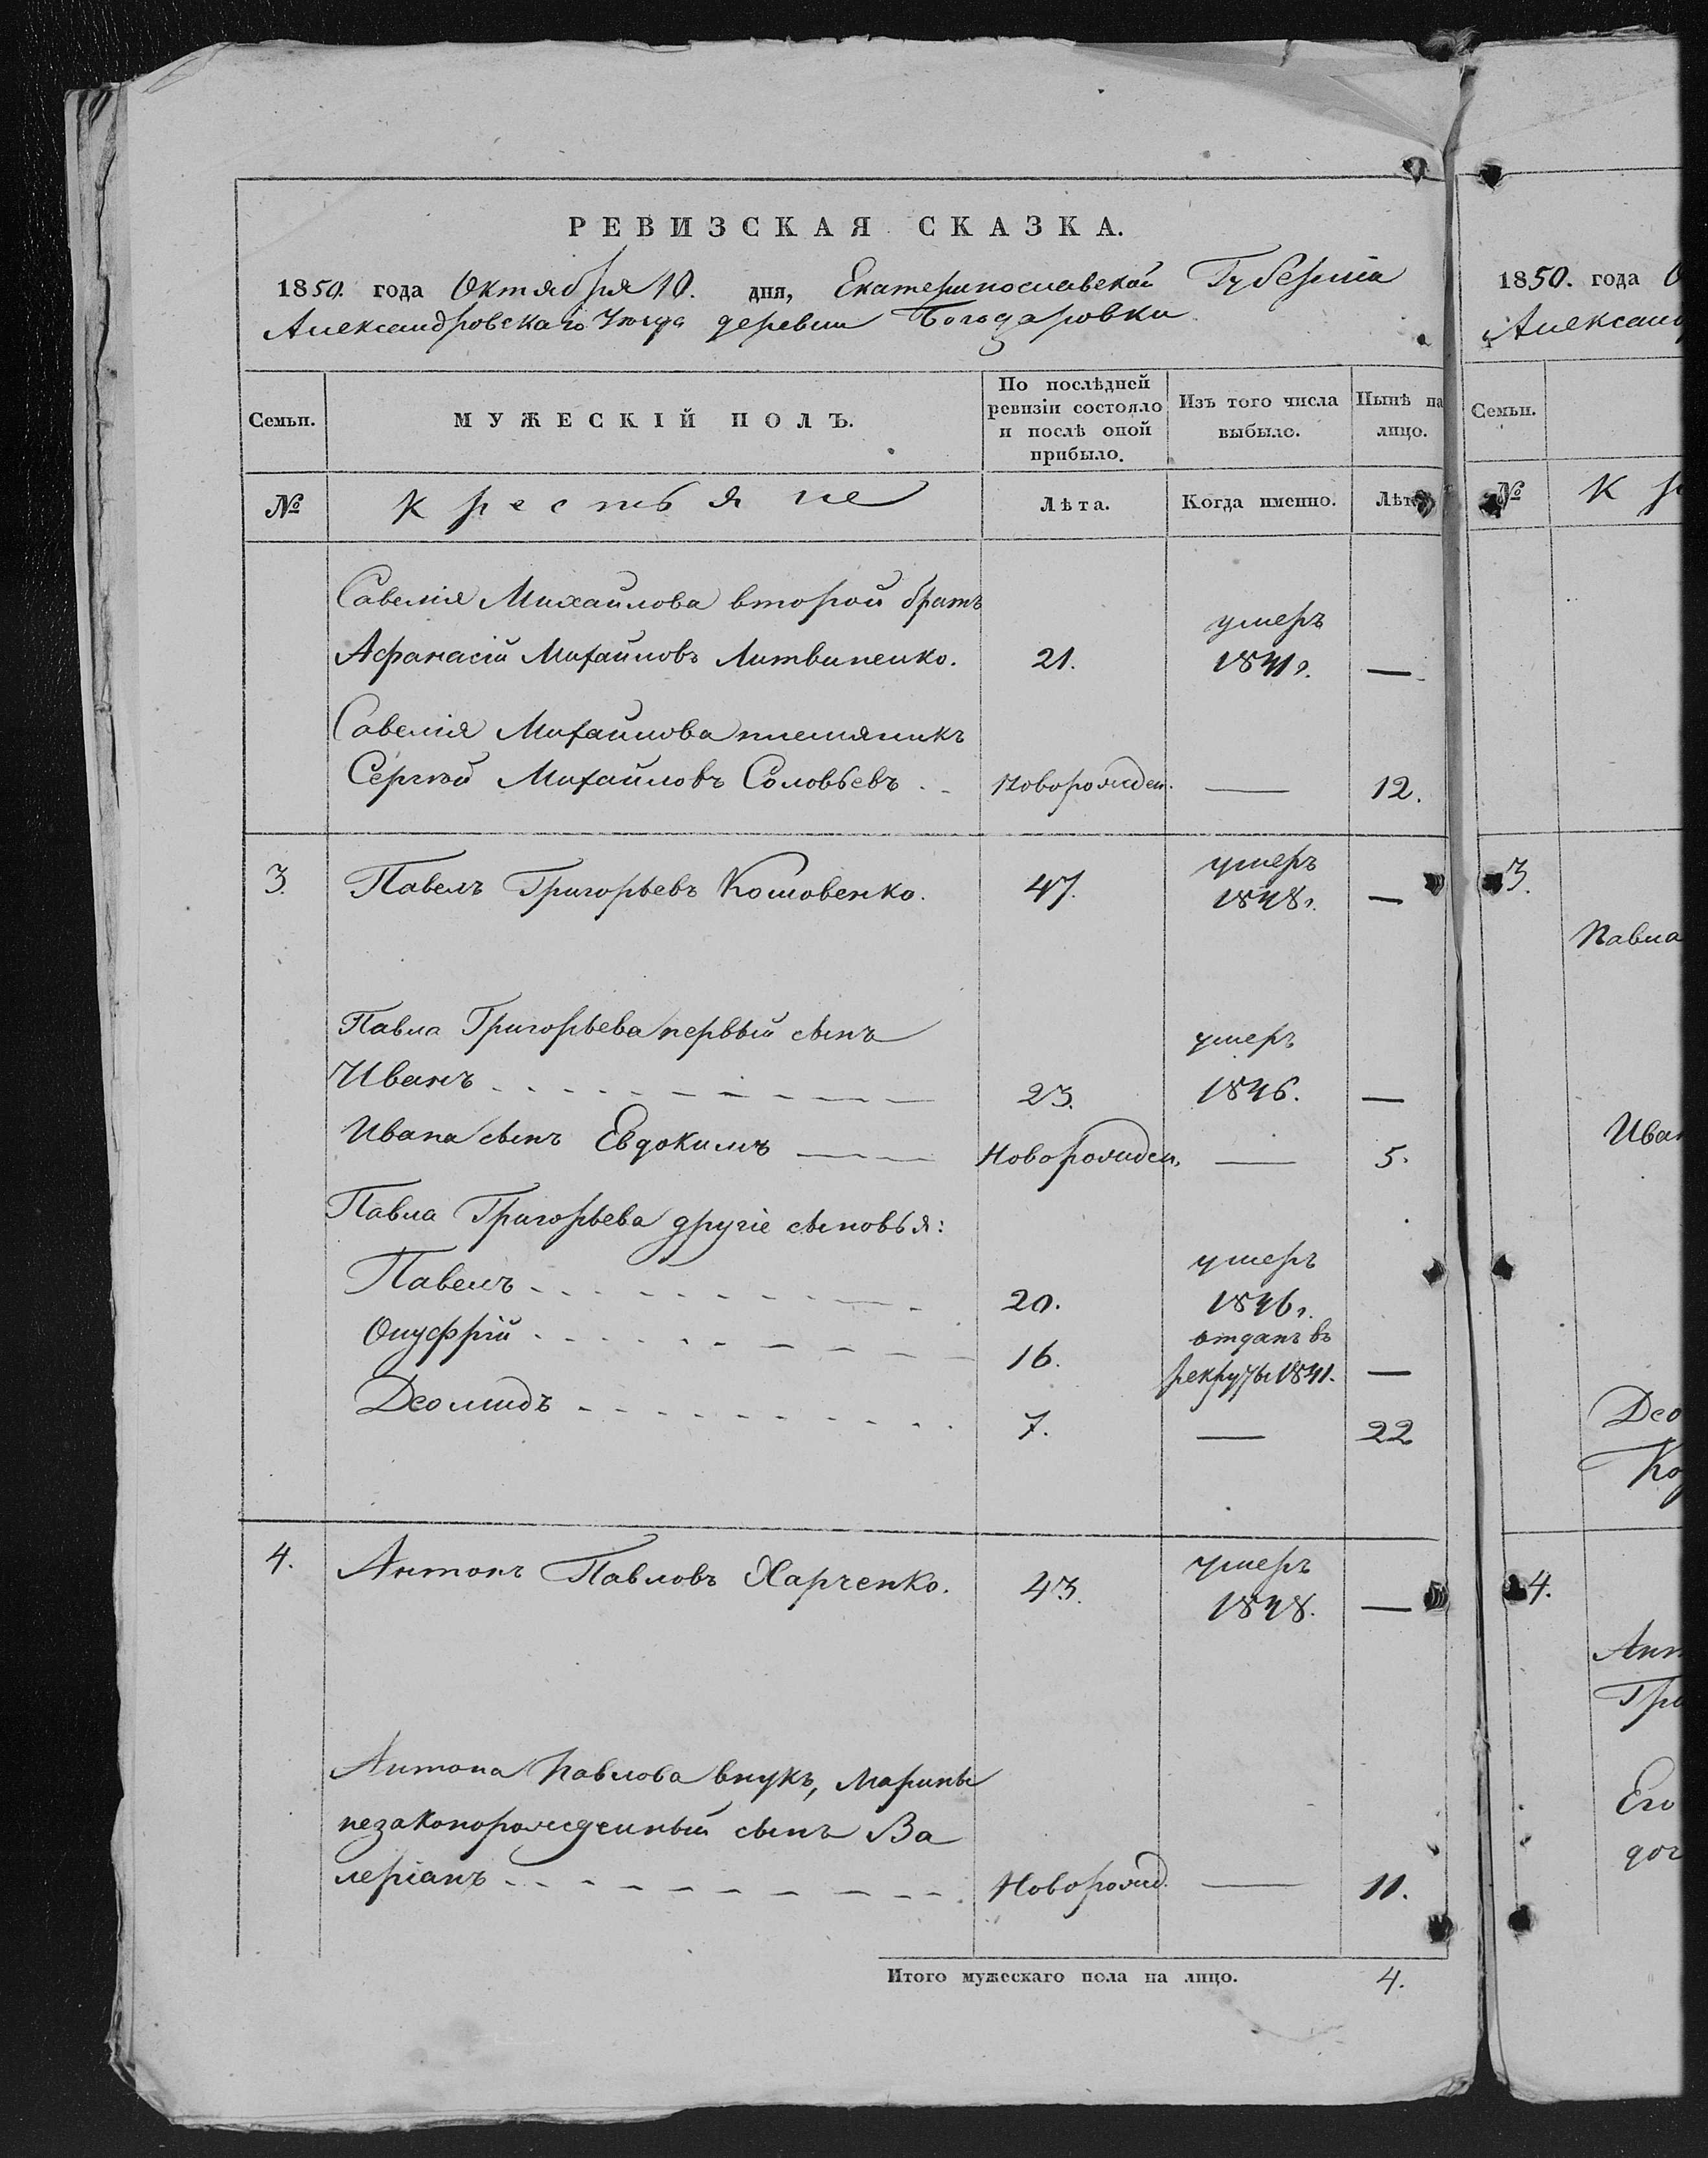 РЕВИЗСКАЯ СКАЗКА.
1850. года Октября 10. дня, Екатеринославской Губерніи
Александровскаго Уѣзда деревни Богодаровки
Семьи. МУЖЕСКІЙ ПОЛЪ. По послѣдней ревизіи состояло и послѣ оной прибыло. Изъ того числа выбыло. Нынѣ на лицо.
№ Крестьяне Лѣта. Когда именно. Лѣта
Савелія Михайлова второй братъ
умеръ
Афанасій Михайловъ Литвиненко. 21. 1841г. —
Савелія Михайлова племяникъ
Сергѣй Михайловъ Соловьевъ . - Новорожден. — 12.
умеръ
3. Павелъ Григорьевъ Кошовенко. 47. 1848г. —
Павла Григорьева первый сынъ умеръ
Иванъ 23. 1846. —
Ивана сынъ Евдокимъ Новорожден. — 5.
Павла Григорьева другіе сыновья:
умеръ
Павелъ 20. 1846г.
отданъ въ
Онуфрій 16. рекруты 1841. —
Деомидъ 7. — 22
умеръ
4. Антонъ Павловъ Харченко. 43. 1848. —
Антона Павлова внукъ, Марины
незаконорожденный сынъ Ва
леріанъ Новорожд. — 11.
Итого мужескаго пола на лицо. 4.
1850. года О
Александ
Семьи.
№ К р
3.
Павла
Иван
Део
4.
Ант
Его
доч